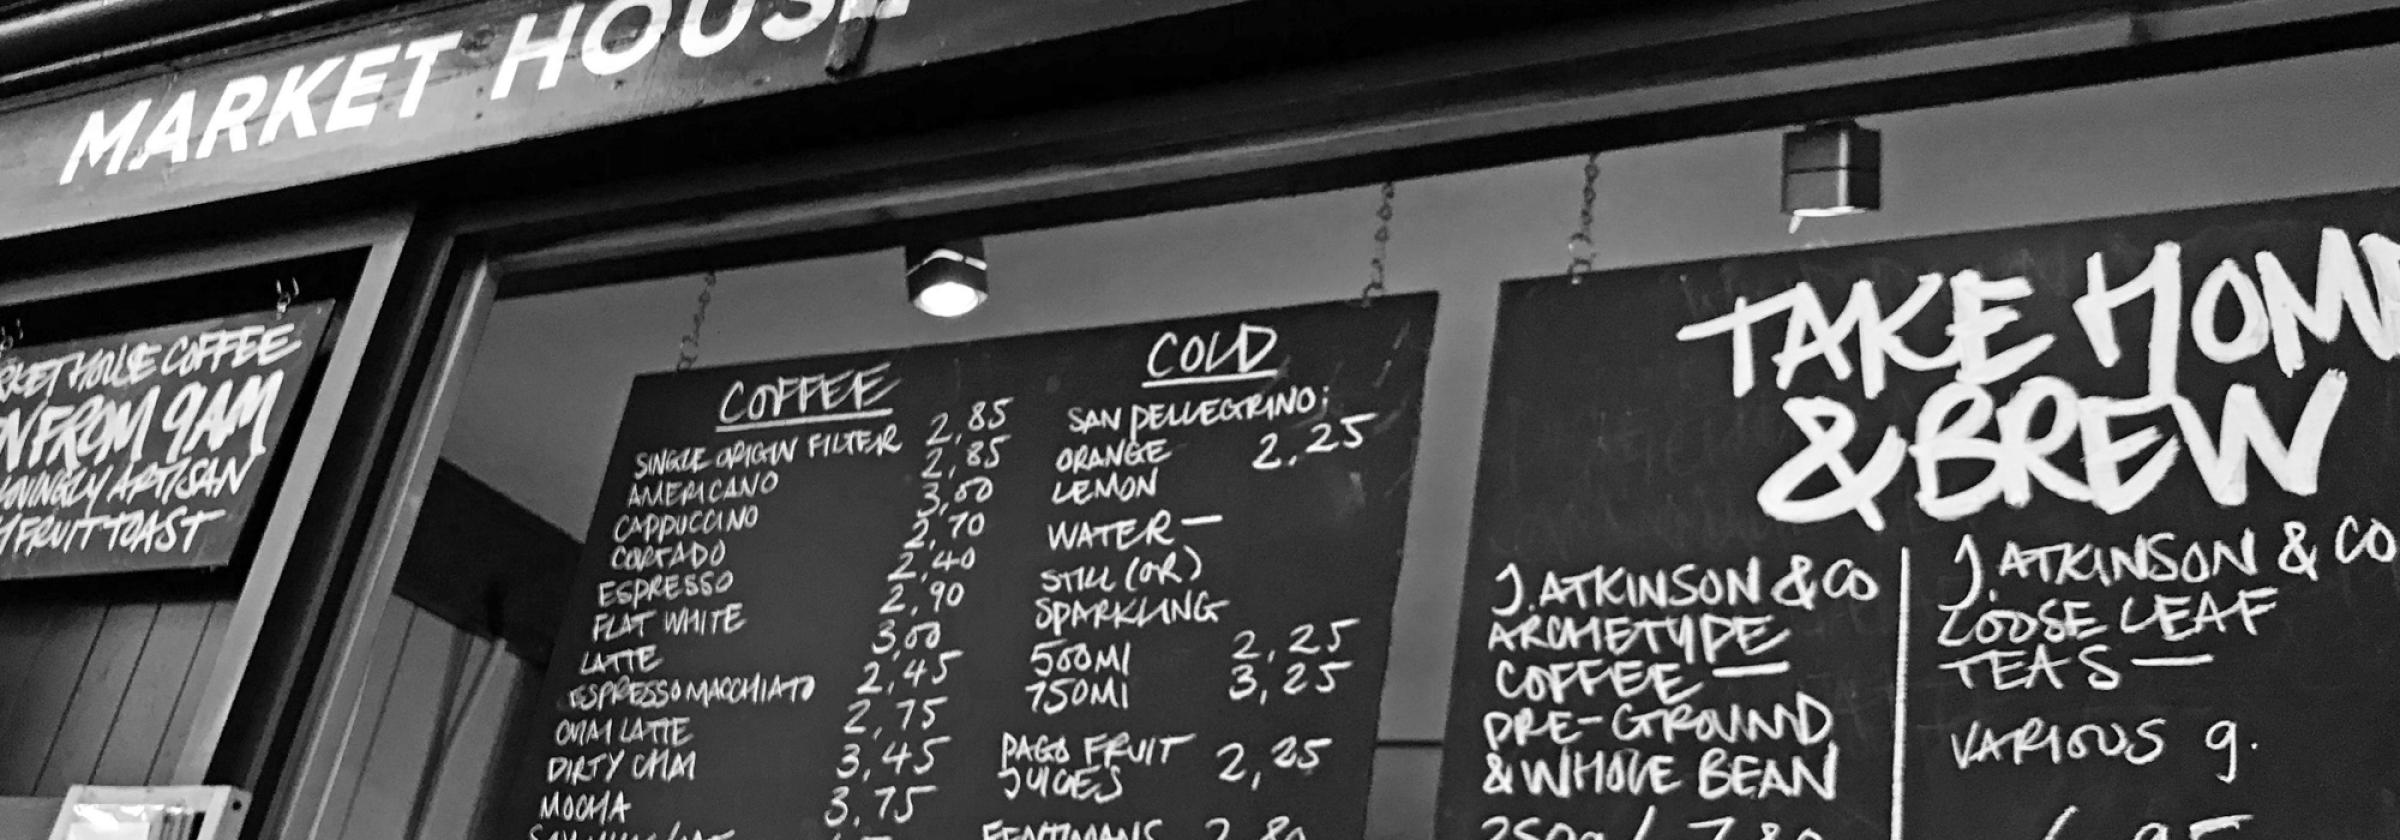 MARKET HOUSE
HOUSE COFFEE
FROM 9AM
ARTISAN
FRUIT TOAST
COFFEE
SINGLE ORIGIN FILTER 2,85
AMERICANO 2,85
CAPPUCCINO 3,00
CORTADO 2,70
ESPRESSO 2,40
FLAT WHITE 2,90
LATTE 3,00
ESPRESSO MACCHIATO 2,45
CHAI LATTE 2,75
DIRTY CHAI 3,45
MOCHA 3,75
COLD
SAN PELLEGRINO:
ORANGE 2,25
LEMON
WATER—
STILL (OR)
SPARKLING
500Ml 2,25
750Ml 3,25
PAGO FRUIT 2,25
JUICES
FENTIMANS 2,80
TAKE HOME
& BREW
J. ATKINSON & CO
ARCHETYPE
COFFEE—
PRE-GROUND
& WHOLE BEAN
250g / 7,80
J. ATKINSON & CO
LOOSE LEAF
TEAS—
VARIOUS g.